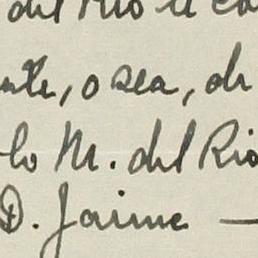 del Rio
o sea, de
lo M. del Rio
D. Jaime —